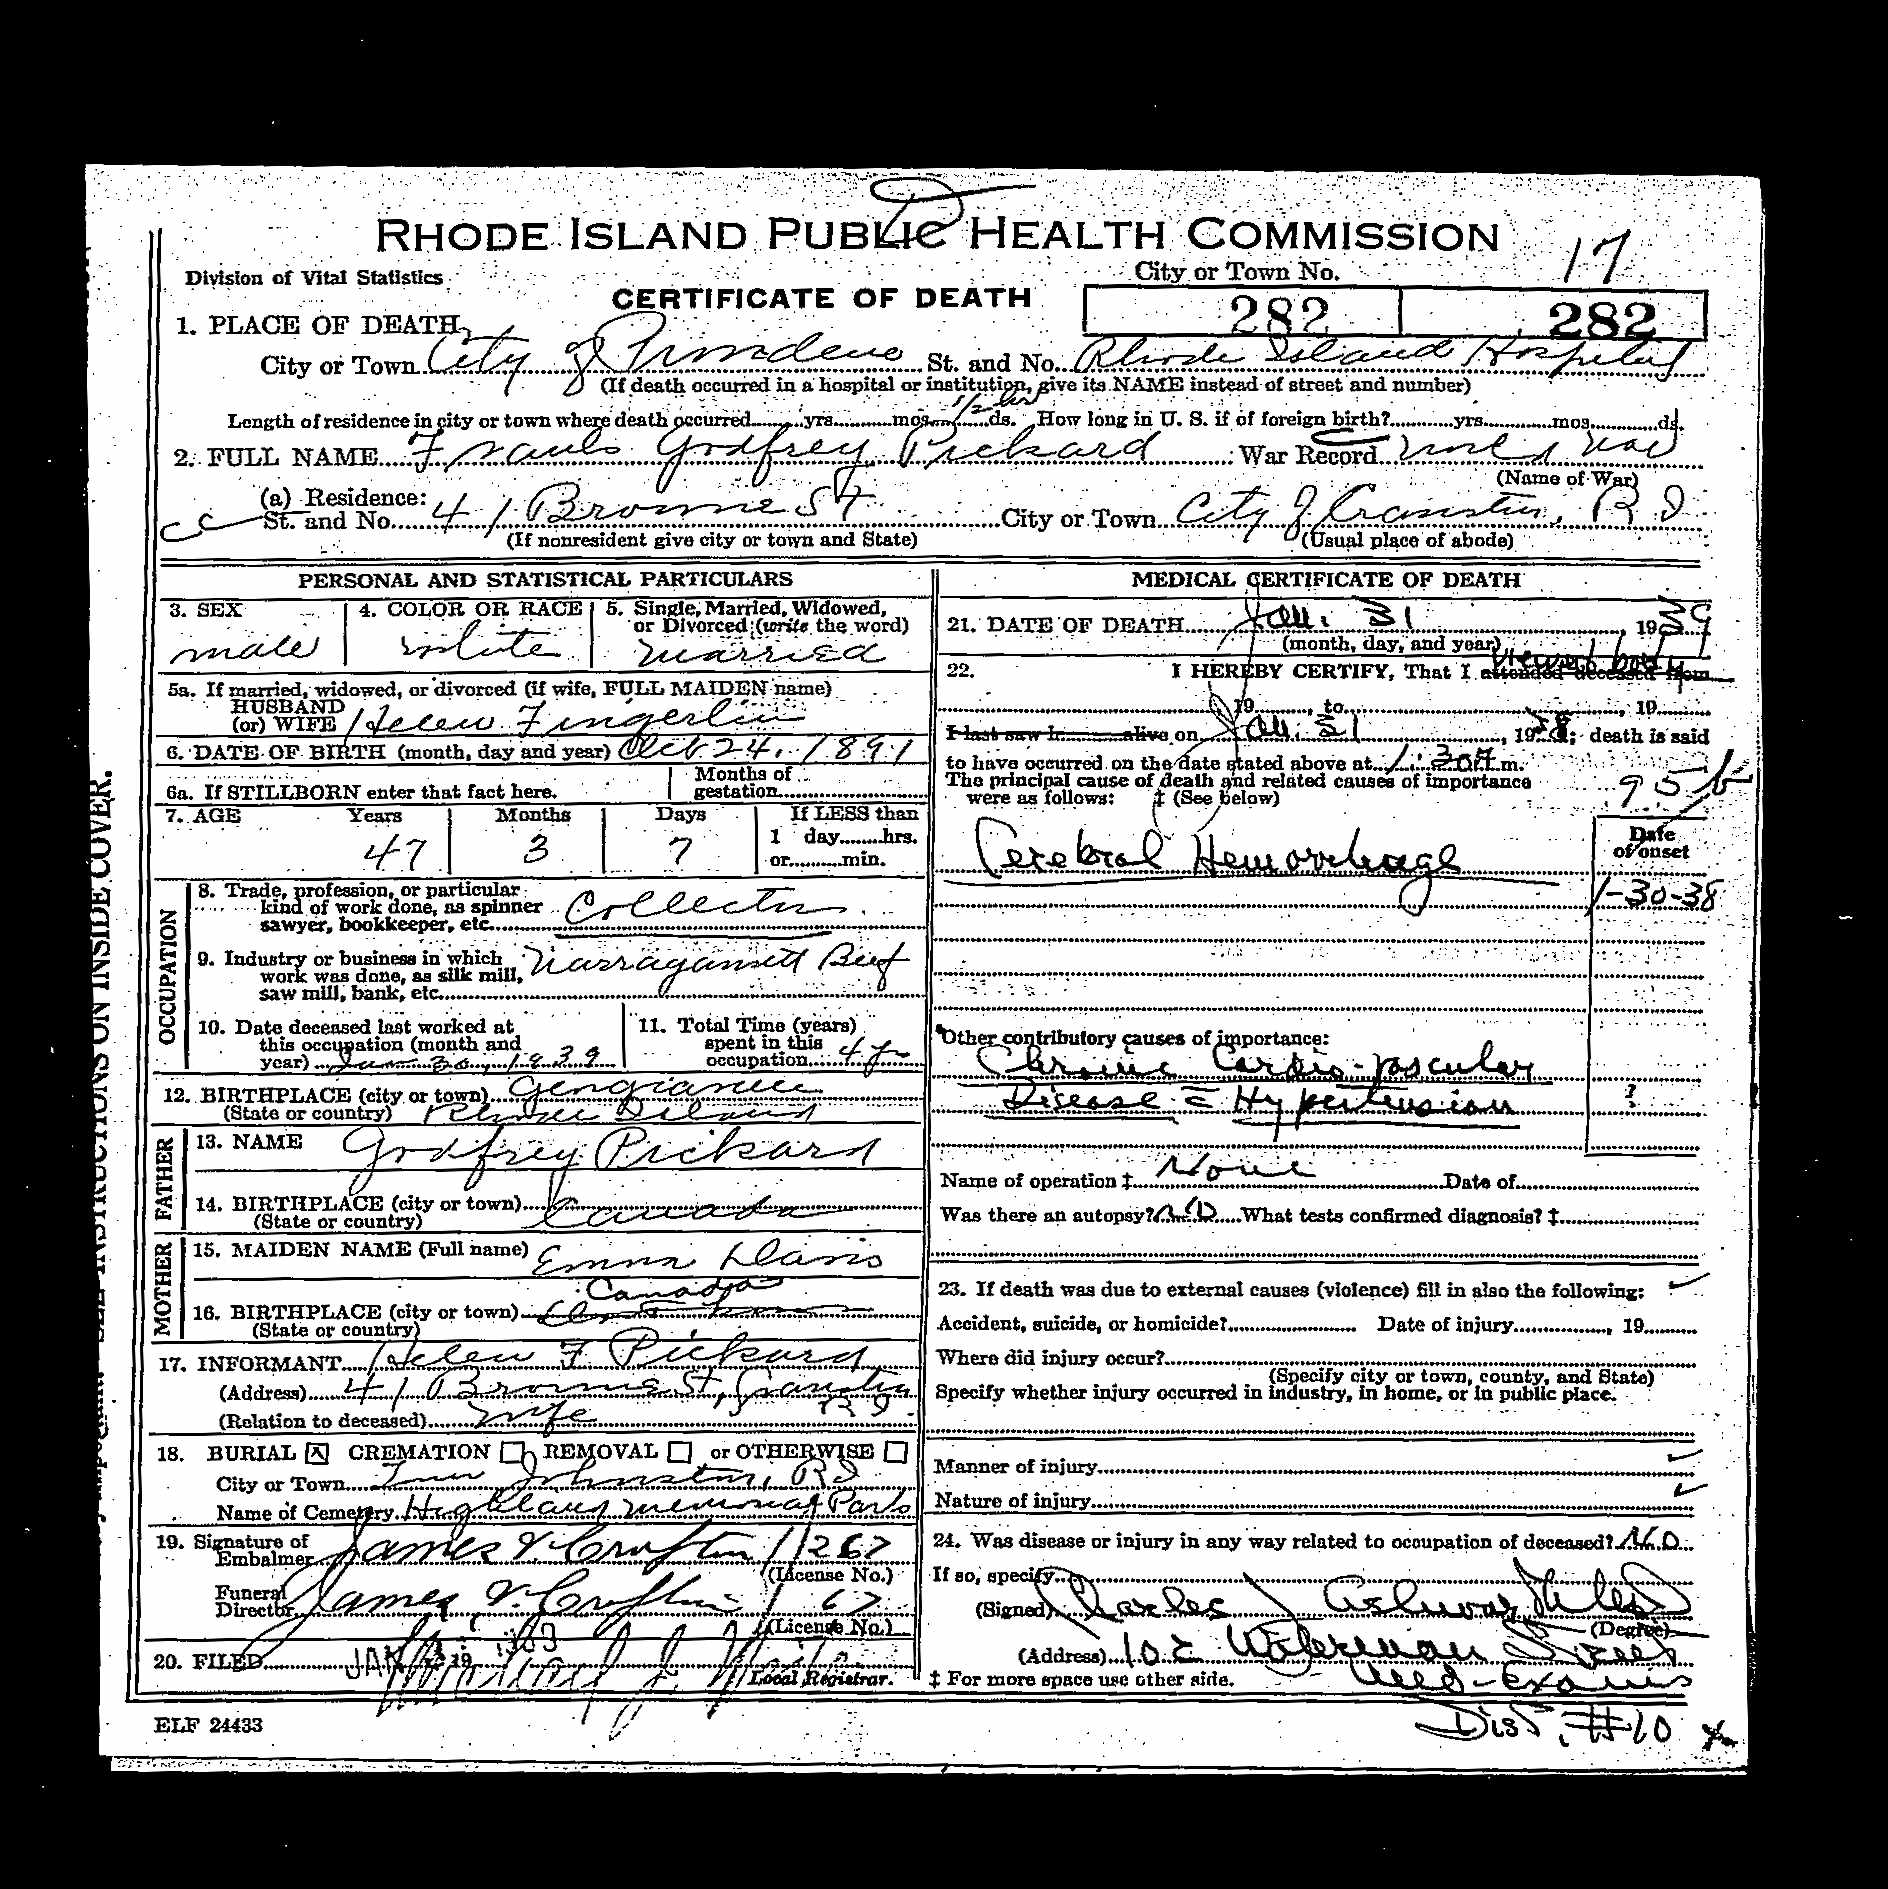 RHODE ISLAND PUBLIC HEALTH COMMISSION
17
Division of Vital Statistics
City or Town No.
CERTIFICATE OF DEATH
282 282
1. PLACE OF DEATH
City or Town City of Providence St. and No. Rhode Island Hospital
(If death occurred in a hospital or institution, give its NAME instead of street and number)
Length of residence in city or town where death occurred yrs. mos. 1/2 hr ds. How long in U. S. if of foreign birth? yrs. mos. ds.
2. FULL NAME Francis Godfrey Pickard War Record
(Name of War)
(a) Residence:
St. and No. 41 Browne St City or Town City of Cranston, R I
(If nonresident give city or town and State) (Usual place of abode)
PERSONAL AND STATISTICAL PARTICULARS
3. SEX 4. COLOR OR RACE 5. Single, Married, Widowed,
or Divorced (write the word)
male white married
5a. If married, widowed, or divorced (if wife, FULL MAIDEN name)
HUSBAND
(or) WIFE Helen Fingerlin
6. DATE OF BIRTH (month, day and year) Oct 24, 1891
6a. If STILLBORN enter that fact here. Months of
gestation
7. AGE Years Months Days If LESS than
1 day hrs.
47 3 7 or min.
OCCUPATION
8. Trade, profession, or particular
kind of work done, as spinner
sawyer, bookkeeper, etc. Collector
9. Industry or business in which
work was done, as silk mill,
saw mill, bank, etc. Narragansett Beef
10. Date deceased last worked at
this occupation (month and
year) Jan 30, 1939
11. Total Time (years)
spent in this
occupation 4 yr
12. BIRTHPLACE (city or town)
(State or country) Rhode Island
FATHER
13. NAME Godfrey Pickard
14. BIRTHPLACE (city or town)
(State or country) Canada
MOTHER
15. MAIDEN NAME (Full name) Emma Davis
Canada
16. BIRTHPLACE (city or town)
(State or country)
17. INFORMANT Helen F Pickard
(Address) 41 Browne St, Cranston
R I.
(Relation to deceased) wife
18. BURIAL CREMATION REMOVAL or OTHERWISE
City or Town Town Johnston, R I
Name of Cemetery Highland Memorial Park
19. Signature of
Embalmer James V. Crofton 1267
(License No.)
Funeral
Director James V. Crofton 67
(License No.)
20. FILED JAN 19
Local Registrar.
MEDICAL CERTIFICATE OF DEATH
21. DATE OF DEATH Jan. 31, 1939
(month, day, and year)
viewed body
22. I HEREBY CERTIFY, That I attended deceased from
19 , to , 19
I last saw h alive on Jan. 31, 19 ; death is said
to have occurred on the date stated above at 1:30 A m.
The principal cause of death and related causes of importance
were as follows: ‡ (See below)
95 b
Date
of onset
Cerebral Hemorrhage
1-30-38
Other contributory causes of importance:
Chronic Cardio-vascular
Disease = Hypertension ?
Name of operation ‡ None Date of
Was there an autopsy? NO What tests confirmed diagnosis? ‡
23. If death was due to external causes (violence) fill in also the following:
Accident, suicide, or homicide? Date of injury , 19
Where did injury occur?
(Specify city or town, county, and State)
Specify whether injury occurred in industry, in home, or in public place.
Manner of injury
Nature of injury
24. Was disease or injury in any way related to occupation of deceased? NO
If so, specify
(Signed) Charles J Ashworth
(Degree)
(Address) 102 Waterman Street
‡ For more space use other side.
Med-Exam
Dist. #10
ELF 24433
SEE INSTRUCTIONS ON INSIDE COVER.